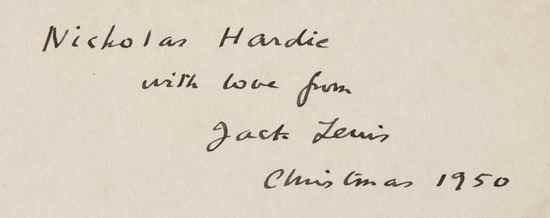 Nicholas Hardie
with love from
Jack Lewis
Christmas 1950